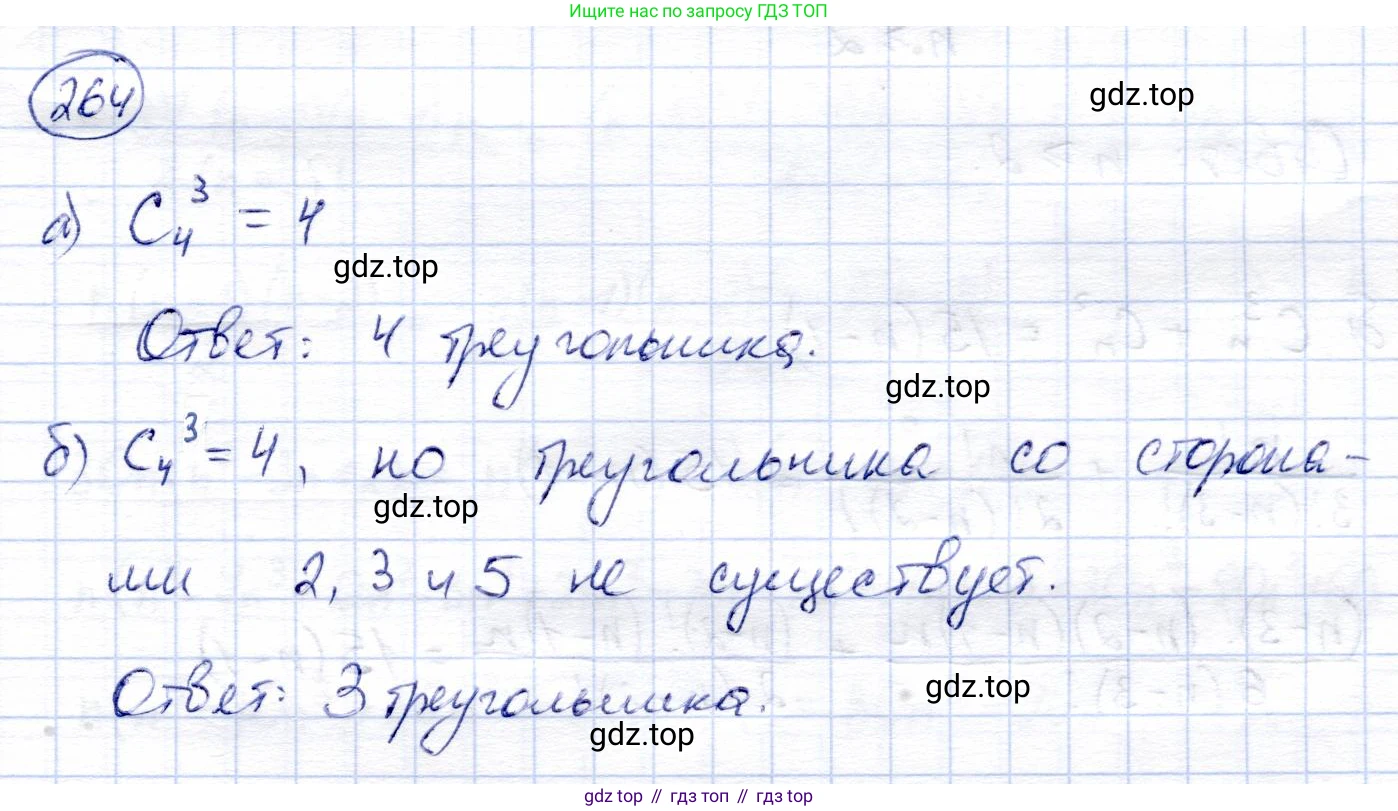 Ищите нас по запросу ГДЗ ТОП
264
gdz.top
а) C₄³ = 4
gdz.top
Ответ: 4 треугольника.
gdz.top
б) C₄³ = 4, но треугольника со сторона-
gdz.top
ми 2, 3 и 5 не существует.
Ответ: 3 треугольника.
gdz.top
gdz.top
gdz top // гдз топ // gdz top